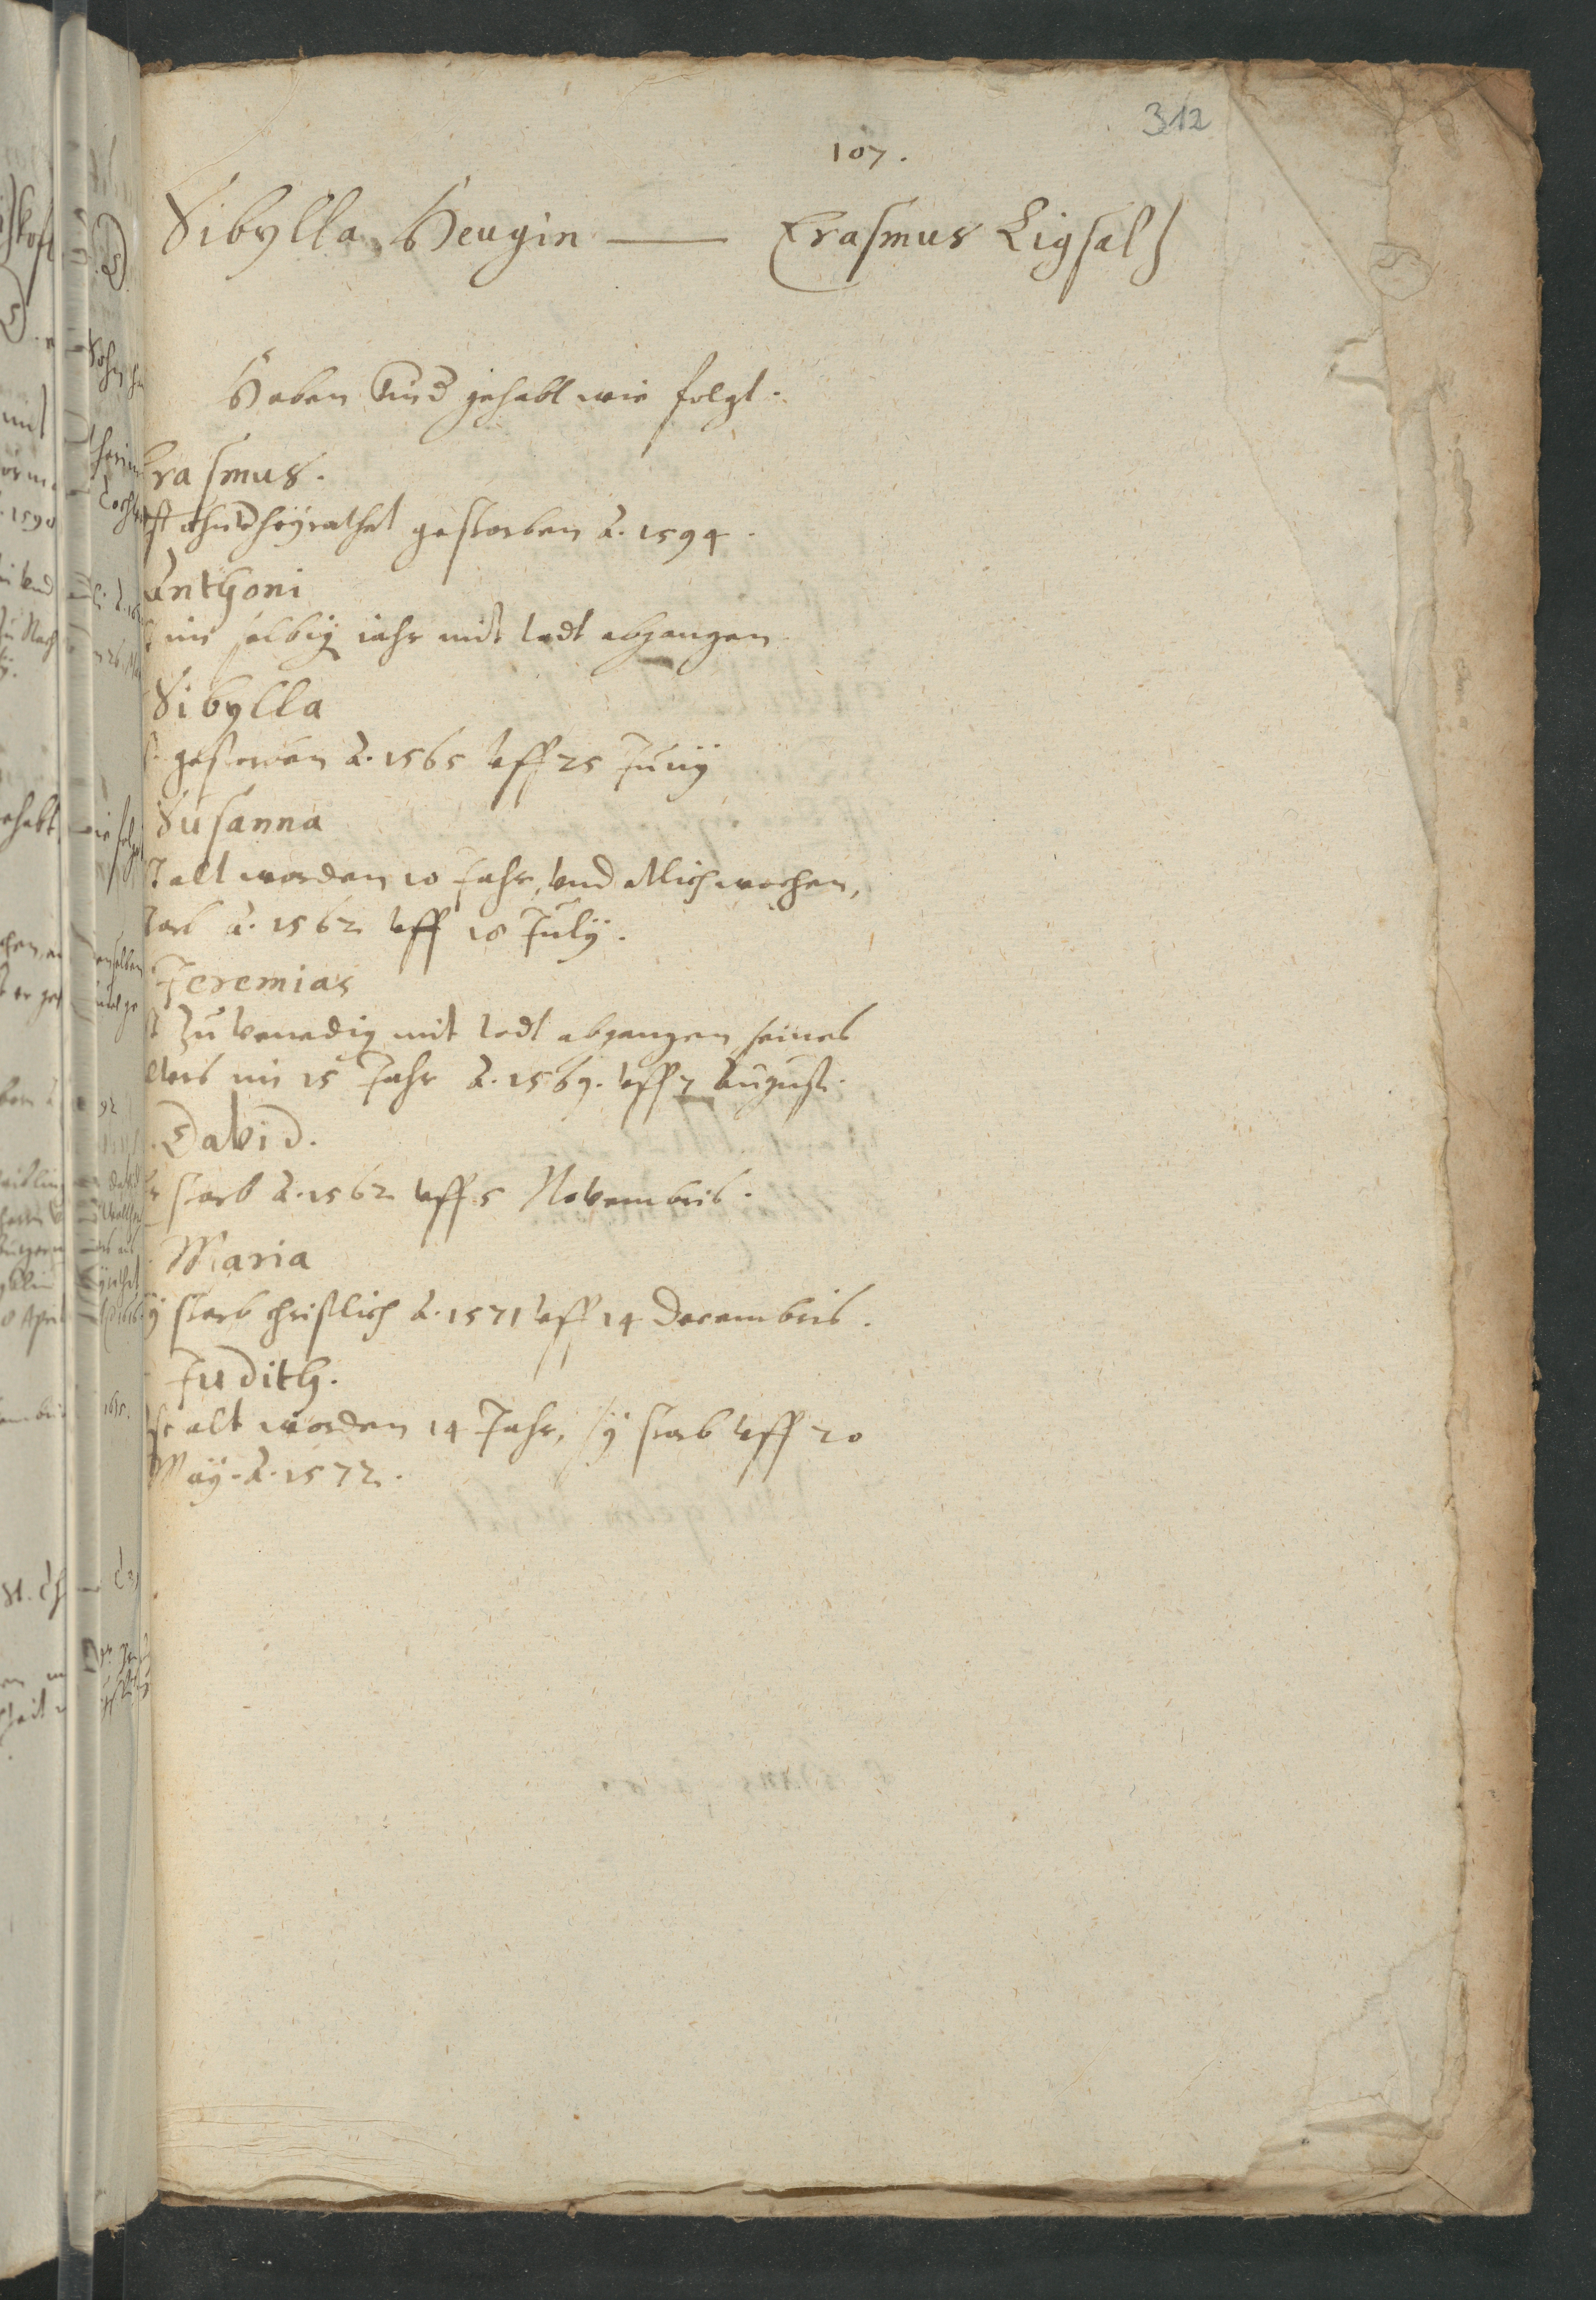 312
107.
Sibylla Heugin — Erasmus Ligsalz
Haben Kind gehabt wie folgt.
Erasmus.
ist ohnverheyrathet gestorben A. 1594.
Anthoni
im selbig jahr mit todt abgangen
Sibylla
gestorben A. 1565 vff 25 Junij
Susanna
alt worden 10 Jahr vnd etlich wochen,
starb A. 1562 vff 18 Julij.
Jeremias
ist zu Venedig mit todt abgangen seines
alters im 15 Jahr A. 1569. vff 7 August.
David.
er starb A. 1562 vff 5 Novembris.
Maria
sy starb christlich A. 1571 vff 14 Decembris.
Judith.
ist alt worden 14 Jahr, sy starb vff 20
May. A. 1572.